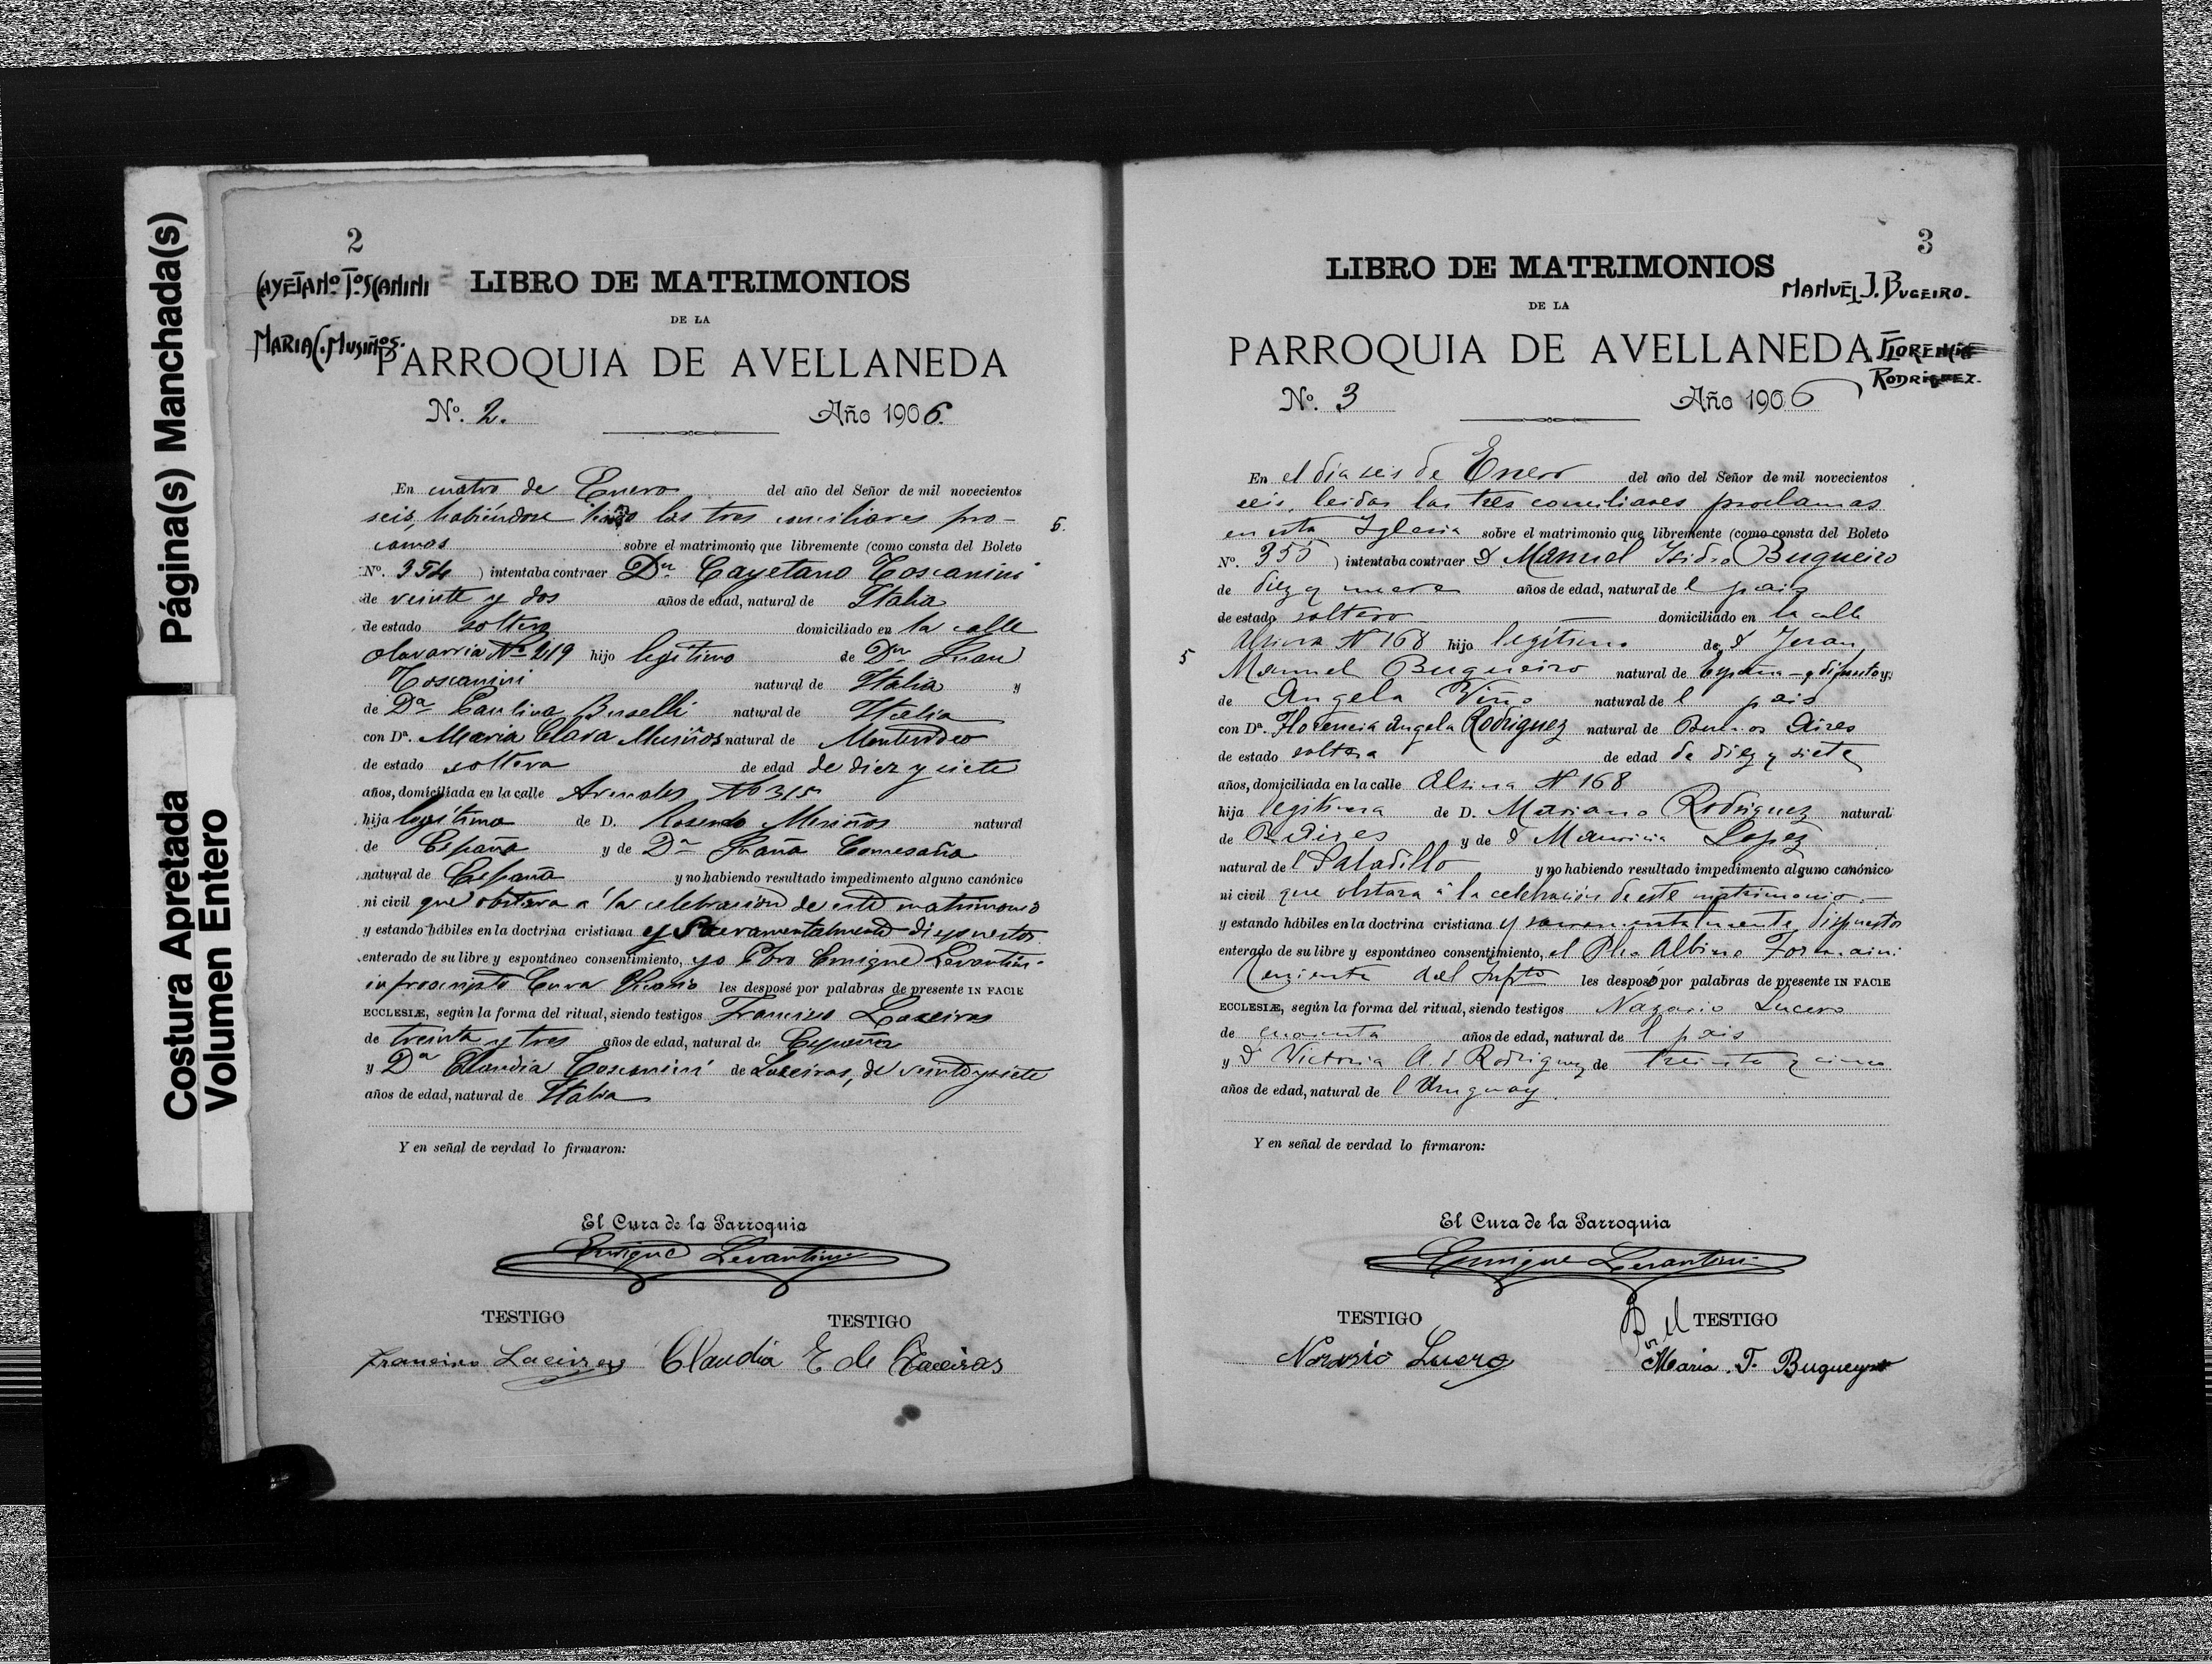 Página(s) Manchada(s)
Costura Apretada
Volumen Entero
2
CAYETANO TOSCANINI
MARIA C. MUSIÑOS.
LIBRO DE MATRIMONIOS
DE LA
PARROQUIA DE AVELLANEDA
Nº. 2. Año 1906.
En cuatro de Enero del año del Señor de mil novecientos
seis, habiéndose las tres conciliares pro-
camas sobre el matrimonio que libremente (como consta del Boleto
Nº. 354 ) intentaba contraer Dn Cayetano Toscanini
de veinte y dos años de edad, natural de Italia
de estado soltero domiciliado en la calle
Olavarria Nº 219 hijo legitimo de Dn Juan
Toscanini natural de Italia y
de Da Paulina Buselli natural de Italia
con Da. Maria Clara Musiños natural de Montevideo
de estado soltera de edad de diez y siete
años, domiciliada en la calle Arenales No 315
hija legítima de D. Rosendo Musiños natural
de España y de Da Juana Comesaña
natural de España y no habiendo resultado impedimento alguno canónico
ni civil que obstara a la celebracion de este matrimonio
y estando hábiles en la doctrina cristiana y Sacramentalmente dispuestos
enterado de su libre y espontáneo consentimiento, yo Pbro Enrique Levantini
infrascripto Cura Vicario les desposé por palabras de presente IN FACIE
ECCLESIÆ, según la forma del ritual, siendo testigos Francisco Laceiras
de treinta y tres años de edad, natural de España
y Da Claudia Toscanini de Laceiras, de veinte y siete
años de edad, natural de Italia
Y en señal de verdad lo firmaron:
El Cura de la Parroquia
Enrique Levantini
TESTIGO TESTIGO
Francisco Laceiras Claudia E de Laceiras
5.
3
MANUEL J. BUGEIRO.
FLORENCIA
RODRIGUEZ.
LIBRO DE MATRIMONIOS
DE LA
PARROQUIA DE AVELLANEDA
Nº. 3 Año 1906
5
En el dia seis de Enero del año del Señor de mil novecientos
seis, leidas las tres conciliares proclamas
en esta Iglesia sobre el matrimonio que libremente (como consta del Boleto
Nº. 355 ) intentaba contraer D Manuel Isidro Bugueiro
de diez y nueve años de edad, natural del pais
de estado soltero domiciliado en la calle
Alsina N 168 hijo legítimo de D
Manuel Bugueiro natural de España - y difunto y
de Angela Viño natural del pais
con Da. Florencia Angela Rodriguez natural de Buenos Aires
de estado soltera de edad de diez y siete
años, domiciliada en la calle Alsina N 168
hija legitima de D. Mariano Rodriguez natural
de B. Aires y de D Mauricia Lopez
natural del Saladillo y no habiendo resultado impedimento alguno canónico
ni civil que obstara á la celebración de este matrimonio.-
y estando hábiles en la doctrina cristiana y sacramentalmente dispuestos
enterado de su libre y espontáneo consentimiento, el Pbro Albino Formaini
Teniente del Infto les desposó por palabras de presente IN FACIE
ECCLESIÆ, según la forma del ritual, siendo testigos Nazario Lucero
de cuarenta años de edad, natural del pais
y D Victoria A. d Rodriguez de treinta y cinco
años de edad, natural del Uruguay.
Y en señal de verdad lo firmaron:
El Cura de la Parroquia
Enrique Levantini
TESTIGO Por el TESTIGO
Nazario Lucero Maria T. Bugueyro